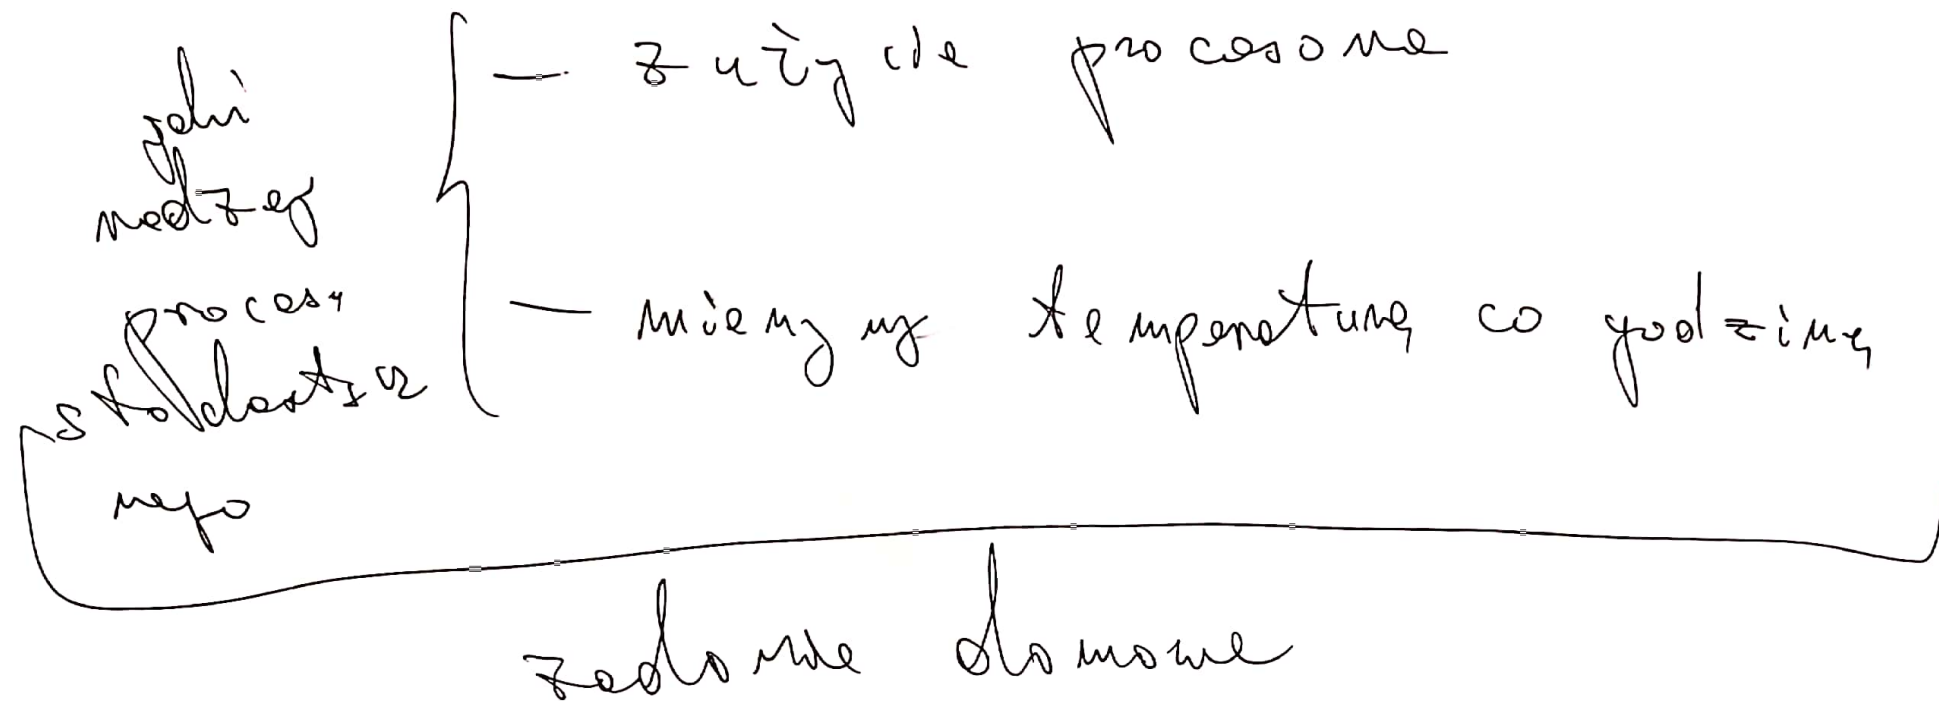 jaki
rodzaj
procesu
stochastycz
nego
— zużycie procesora
— mierzymy temperaturę co godzinę
zadanie domowe